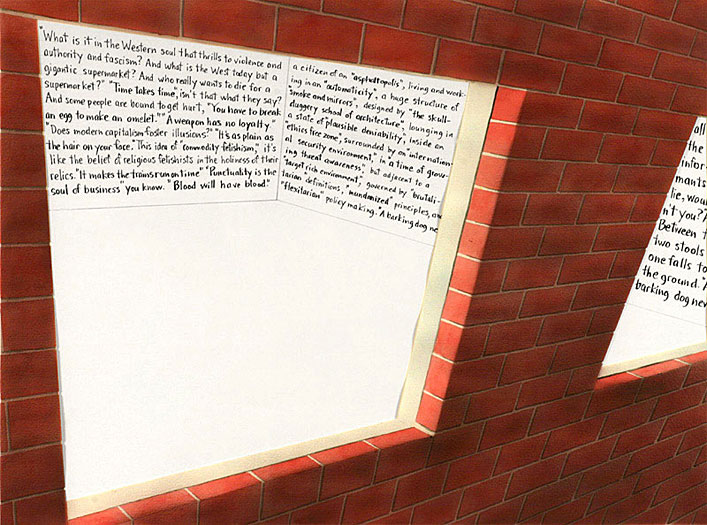 "What is it in the Western soul that thrills to violence and
authority and fascism? And what is the West today but a
gigantic supermarket? And who really wants to die for a
supermarket?" "Time takes time", isn't that what they say?
And some people are bound to get hurt, "You have to break
an egg to make an omelet." "A weapon has no loyalty."
"Does modern capitalism foster illusions?" "It's as plain as
the hair on your face." This idea of "commodity fetishism," it's
like the belief of religious fetishists in the holiness of their
relics. "It makes the trains run on time" "Punctuality is the
soul of business" you know. "Blood will have blood"
a citizen of an "asphaltopolis", living and work-
ing in an "automaticity", a huge structure of
"smoke and mirrors", designed by "the skull-
duggery school of architecture", lounging in
a state of plausible deniability, inside an
"ethics free zone", surrounded by an "internation-
al security environment," in a time of grow-
ing threat awareness", but adjacent to a
"target rich environment", governed by "brutali-
tarian" definitions, "mundanized" principles, an
"flexitarian" policy making. "A barking dog ne
all
the
infor-
mants
lie, woul
n't you? A
Between t
two stools
one falls to
the ground. "A
barking dog nev